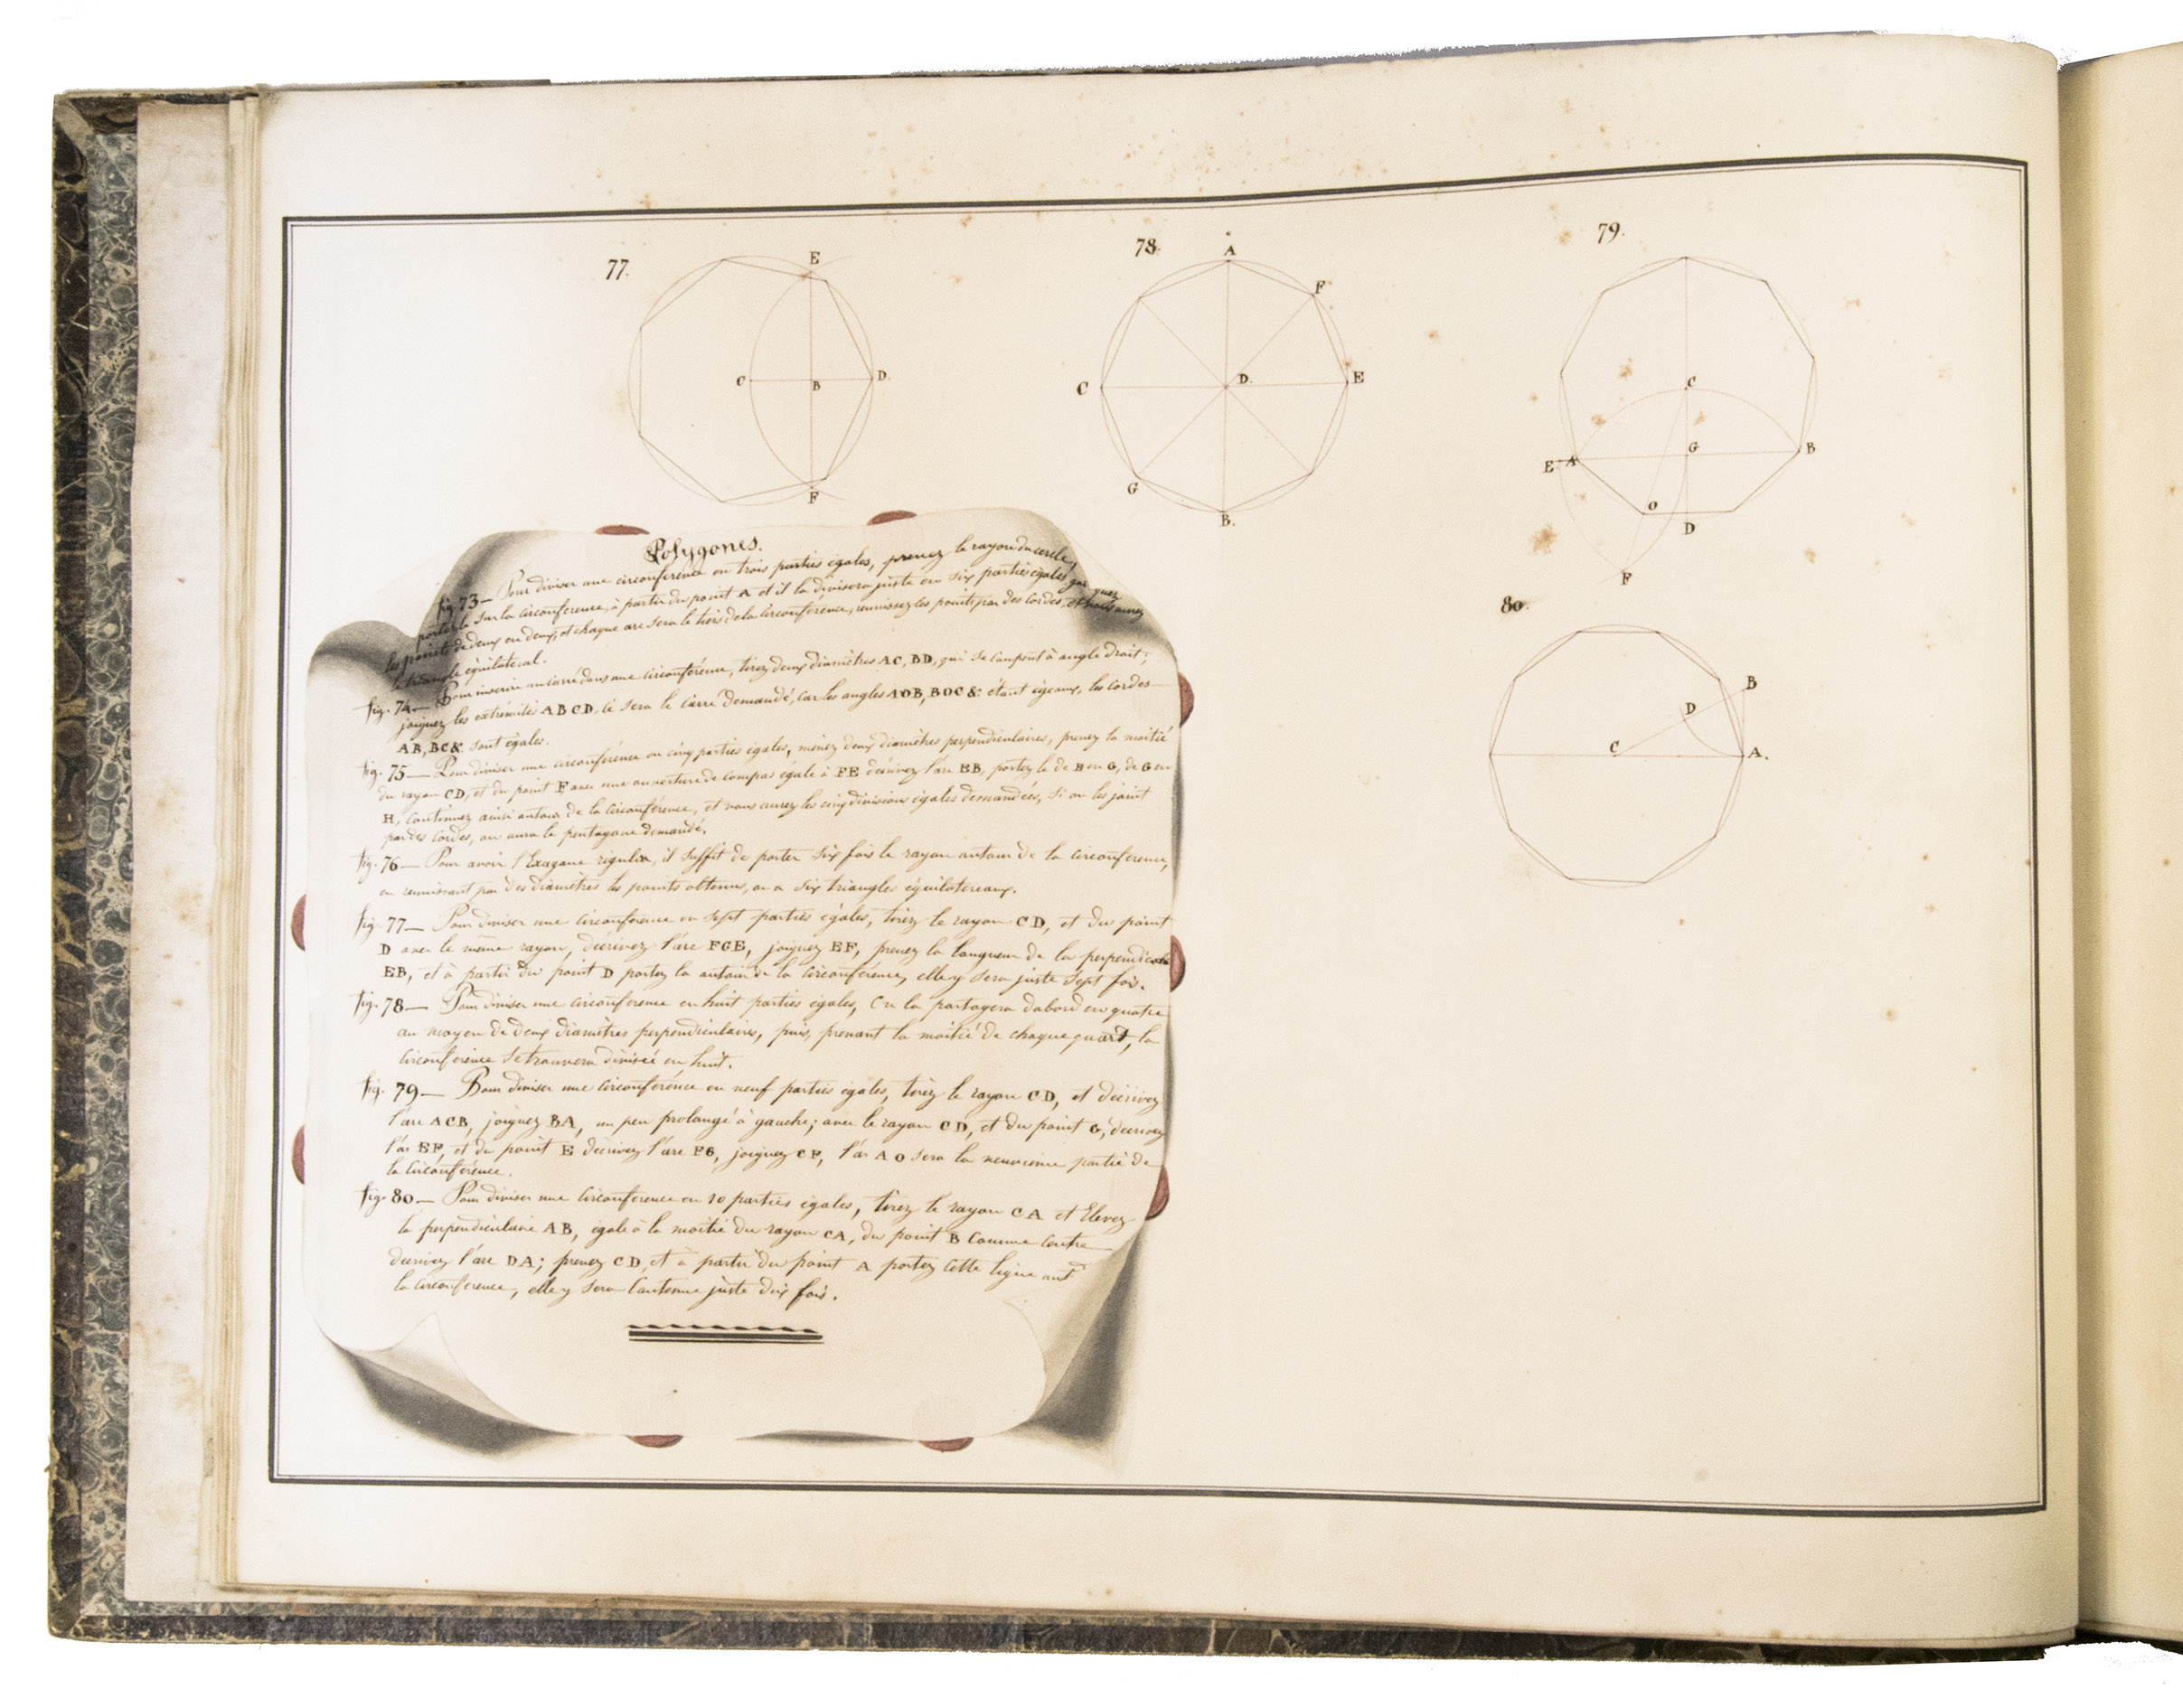 77.
E
C
B
D.
F
78.
A
F
C
D.
E
G
B.
79.
C
G
E A
B
O
D
F
80.
B
D
C
A.
Polygones.
fig. 73 — Pour diviser une circonférence en trois parties égales, prenez le rayon du cercle,
portez la sur la circonférence, à partir du point A et il la divisera juste en six parties égales
les points de deux en deux, et chaque arc sera le tiers de la circonférence, reunissez les points par des cordes, et vous aurez
le triangle équilateral.
fig. 74 — Pour inscrire un carré dans une circonférence, tirez deux diamètres AC, BD, qui se coupent à angle droit;
joignez les extrémités ABCD, ce sera le carré demandé, car les angles AOB, BOC &: étant égeaux, les cordes
AB, BC & sont égales.
fig. 75 — Pour diviser une circonférence en cinq parties égales, menez deux diamètres perpendiculaires, prenez la moitié
du rayon CD, et du point F avec une ouverture de compas égale à FE décrivez l'arc EB, portez le de B en G, de G en
H, continuez ainsi autour de la circonférence, et vous aurez les cinq divisions égales demandées, si on les joint
par des cordes, on aura le pentagone demandé.
fig. 76 — Pour avoir l'Exagone régulier, il suffit de porter six fois le rayon autour de la circonference,
en reunissant par des diamètres les points obtenus, on a six triangles équilatereaux.
fig. 77 — Pour diviser une circonférence en sept parties égales, tirez le rayon CD, et du point
D avec le même rayon, décrivez l'arc FCE, joignez EF, prenez la longueur de la perpendicule
EB, et à partir du point D portez la autour de la circonférence, elle y sera juste sept fois.
fig. 78 — Pour diviser une circonference en huit parties égales, On la partagera d'abord en quatre
au moyen de deux diamètres perpendiculaires, puis, prenant la moitié de chaque quart, la
circonférence se trouvera divisée en huit.
fig. 79 — Pour diviser une circonférence en neuf parties égales, tirez le rayon CD, et décrivez
l'arc ACB, joignez BA, un peu prolongé à gauche; avec le rayon CD, et du point G, décrivez
l'arc EF, et du point E décrivez l'arc FG, joignez CF, l'arc AO sera la neuvieme partie de
la circonférence.
fig. 80 — Pour diviser une circonference en 10 parties égales, tirez le rayon CA et Elevez
la perpendiculaire AB, égale à la moitié du rayon CA, du point B comme centre
decrivez l'arc DA; prenez CD, et à partir du point A portez cette ligne aut.r
la circonference, elle y sera contenue juste dix fois.